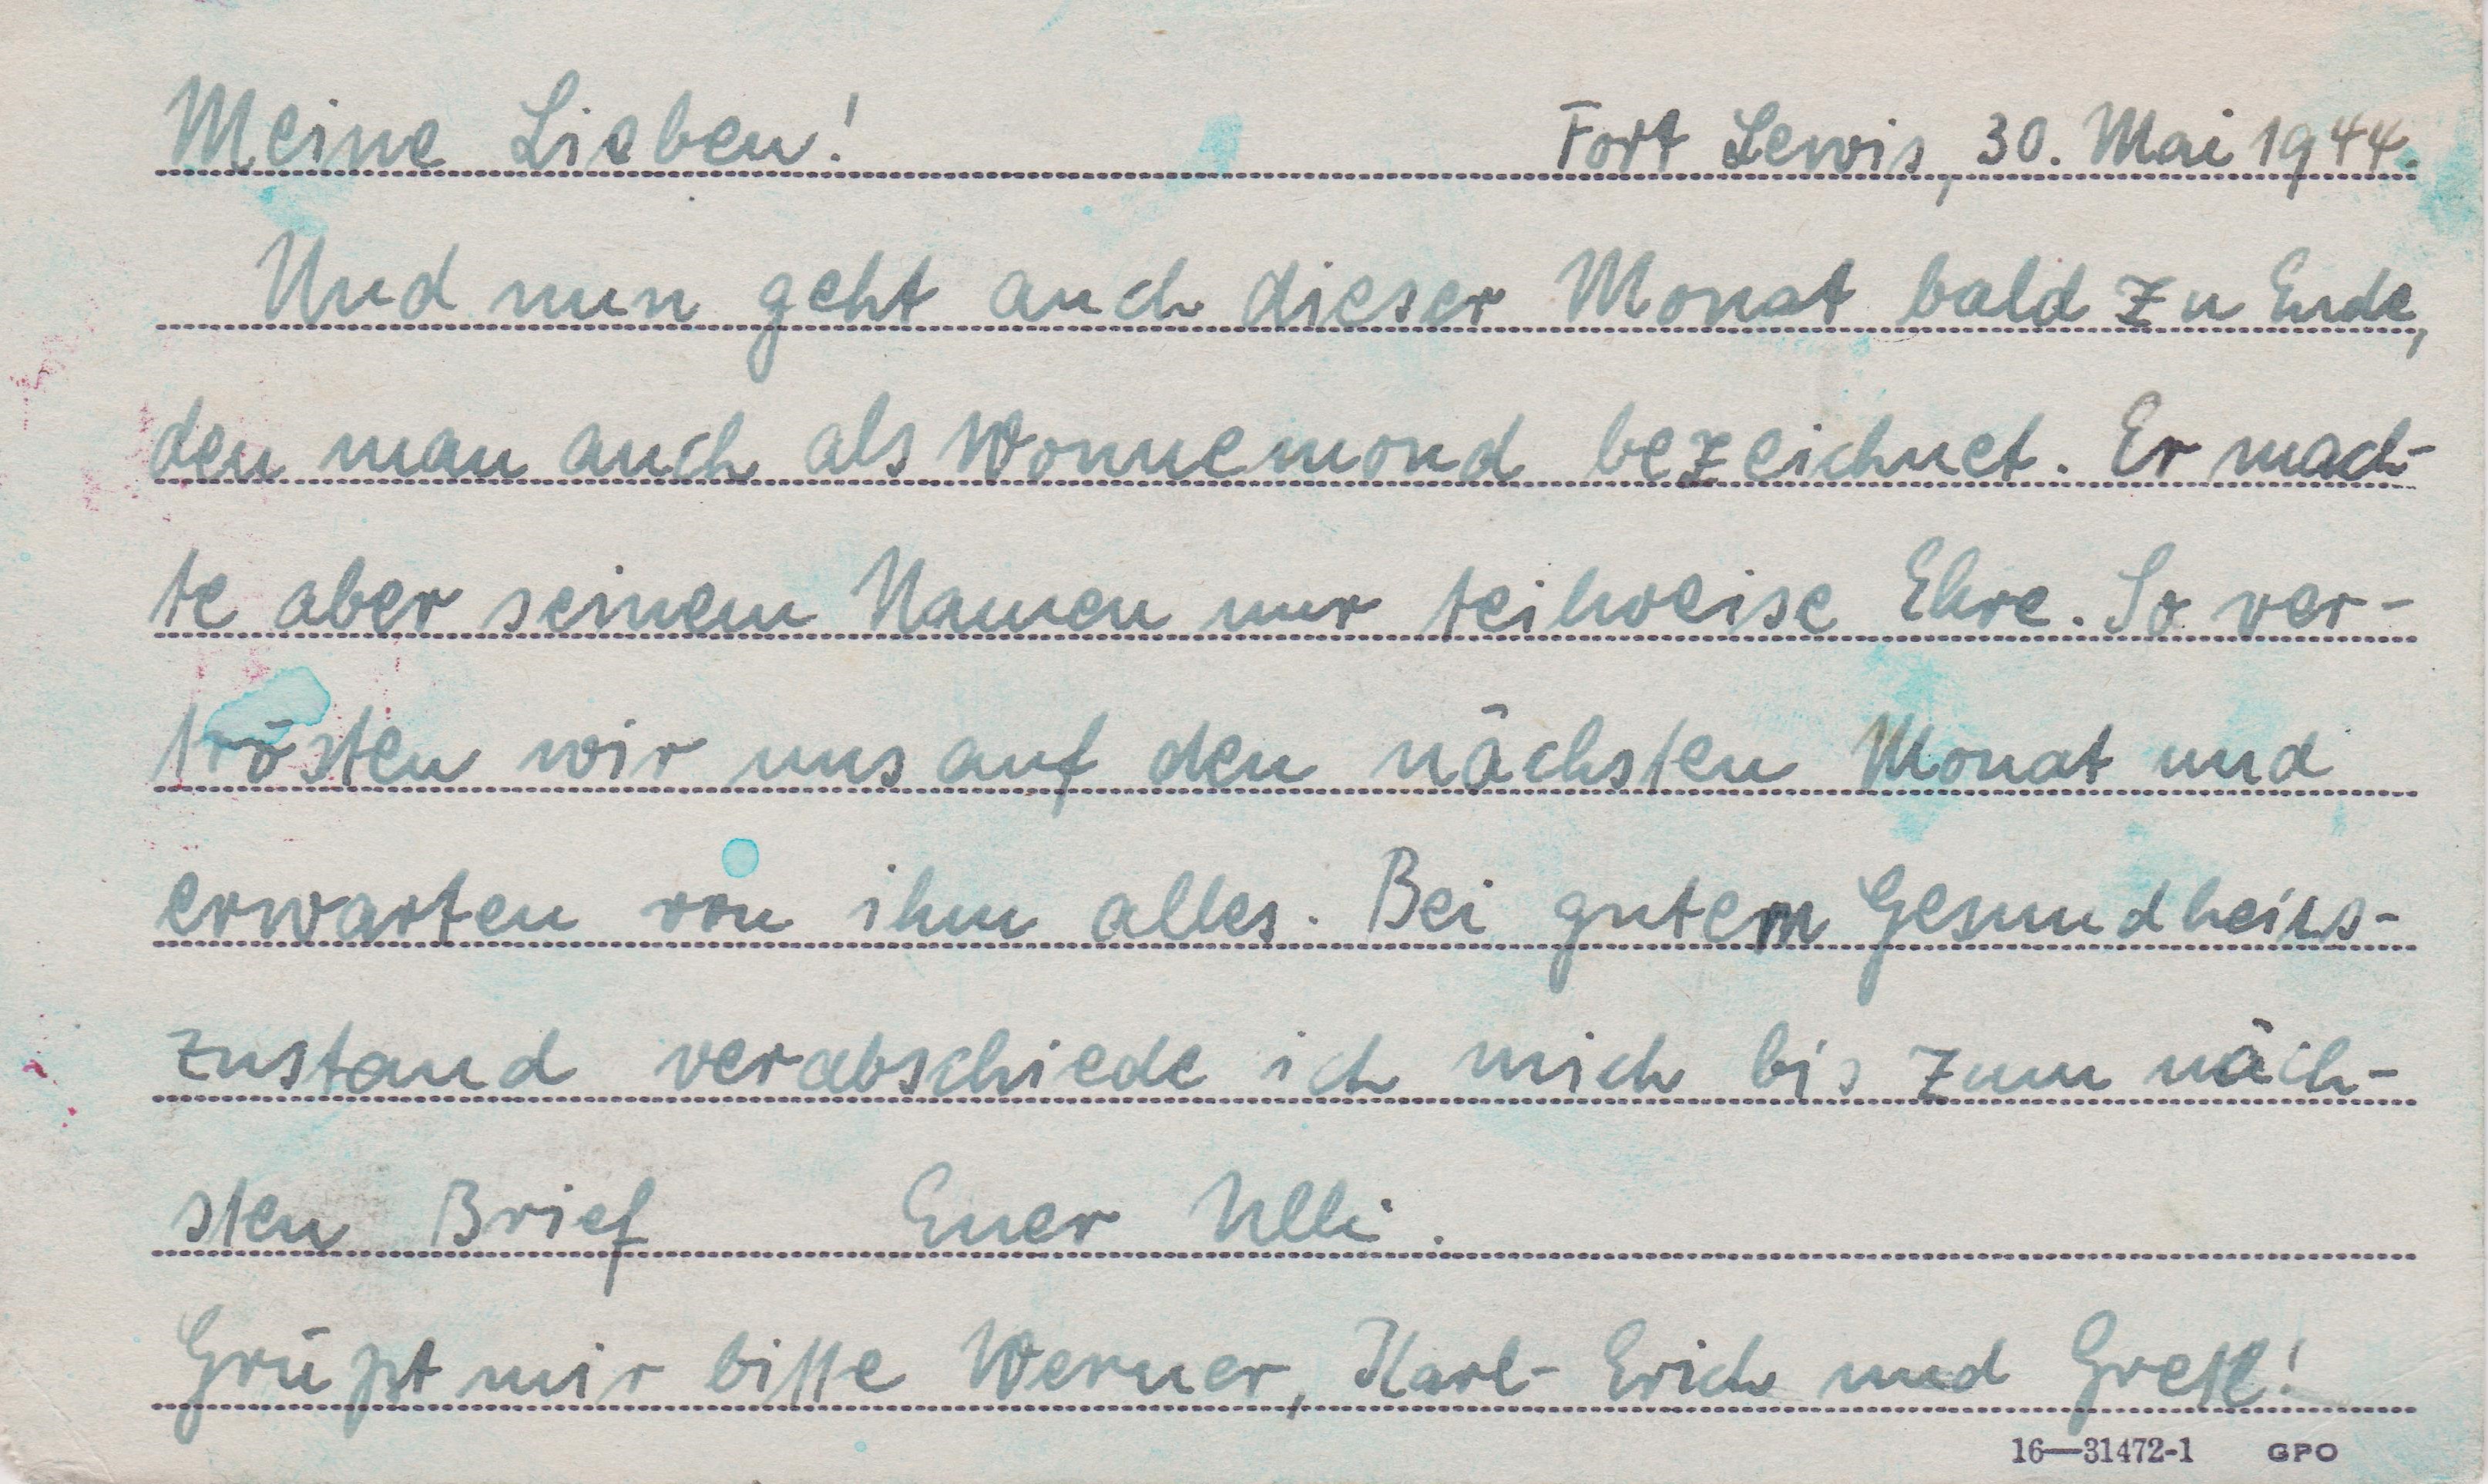 Meine Lieben! Fort Lewis, 30. Mai 1944.
Und nun geht auch dieser Monat bald zu Ende,
den man auch als Wonnemond bezeichnet. Er mach-
te aber seinem Namen nur teilweise Ehre. So ver-
trösten wir uns auf den nächsten Monat und
erwarten von ihm alles. Bei gutem Gesundheits-
zustand verabschiede ich mich bis zum näch-
sten Brief Euer Ulli.
Grüßt mir bitte Werner, Karl-Erich und Gretl!
16—31472-1 GPO